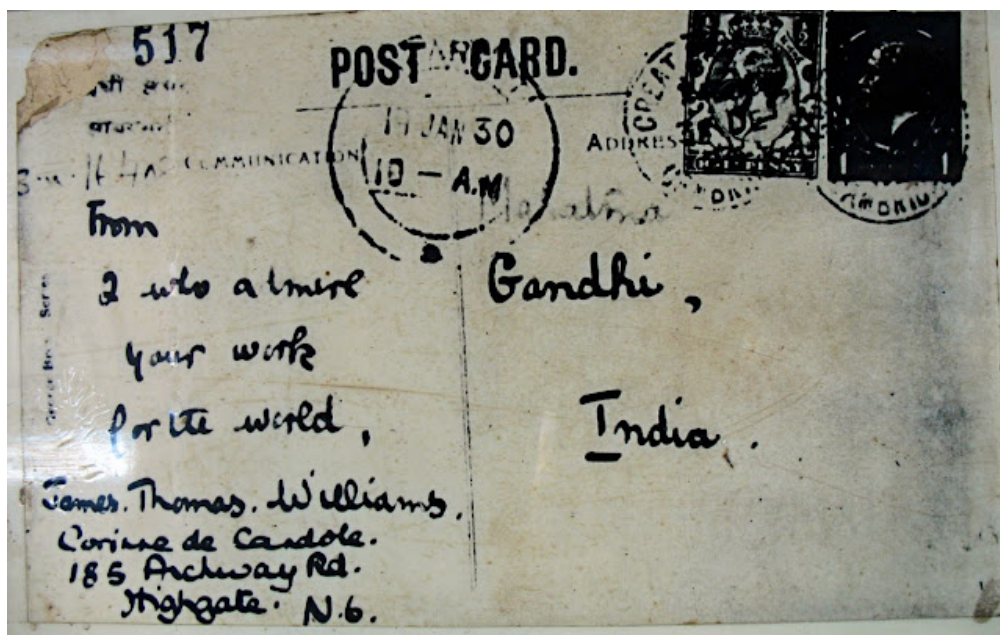 517
POST CARD.
19 JAN 30
10 - A.M
COMMUNICATION
ADDRESS
GREAT
From
2 who admire
your work
for the world,
James. Thomas. Williams.
Corinne de Candole.
185 Archway Rd.
Highgate. N.6.
Mahatma
Gandhi,
India.